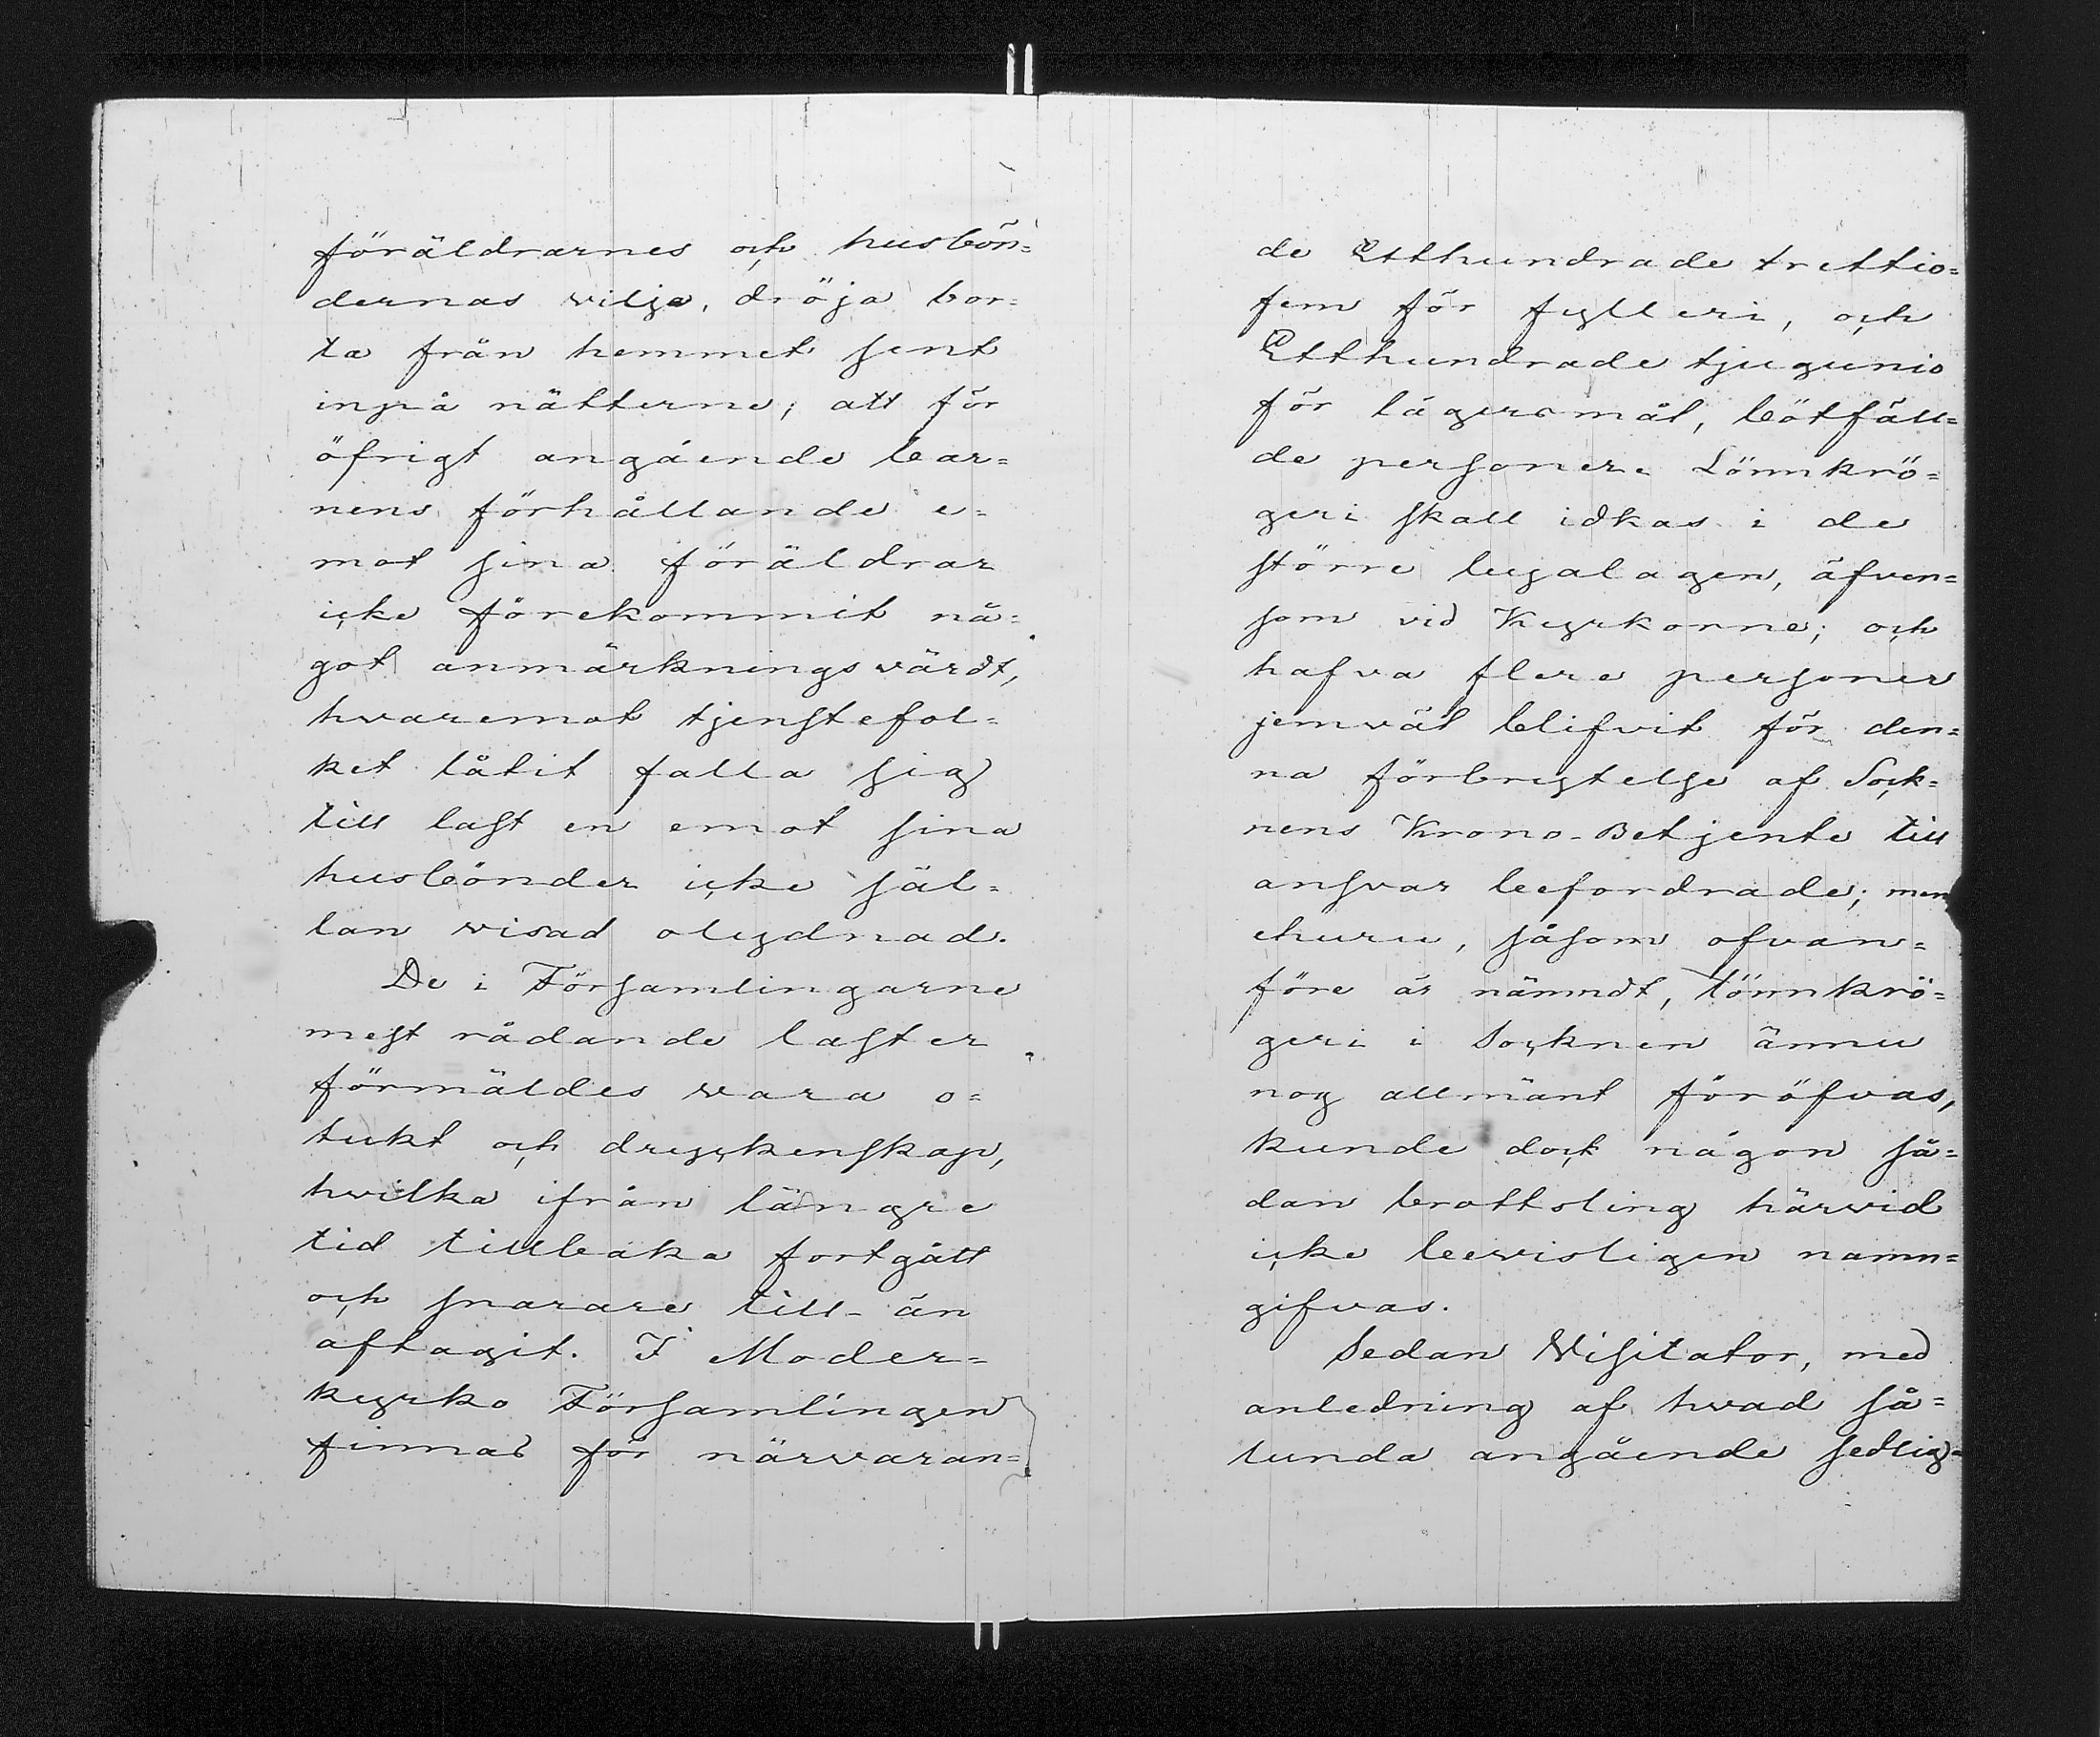 föräldrarnes och husbön=
dernas vilja, dröja bor=
ta från hemmet sent
inpå nätterne; att för
öfrigt angående bar=
nens förhållande e=
mot sina föräldrar
icke förekommit nå=
got anmärkningsvärdt,
hvaremot tjenstefol=
ket låtit falla sig
till last en emot sina
husbönder icke säl=
lan visad olydnad.
De i Församlingarne
mest rådande laster
förmäldes vara o=
tukt och dryckenskap,
hvilka ifrån längre
tid tillbaka fortgått
och snarare till- än
aftagit. I Moder=
kyrko Församlingen
finnas för närvaran=
de Etthundrade trettio=
fem för fylleri, och
Etthundrade tjugunio
för lägersmål, bötfäll=
de personer. Lönnkrö=
geri skall idkas i de
större byalagen, äfven=
som vid Kyrkorne; och
hafva flere personer
jemväl blifvit för den=
na förbrytelse af Sock=
nens Krono-Betjente till
ansvar befordrade; men
ehuru, såsom ofvan=
före är nämndt, lönnkrö=
geri i Socknen ännu
nog allmänt föröfvas,
kunde dock någon så=
dan brottsling härvid
icke bevisligen namn=
gifvas.
Sedan Visitator, med
anledning af hvad så=
lunda angående sedlig=